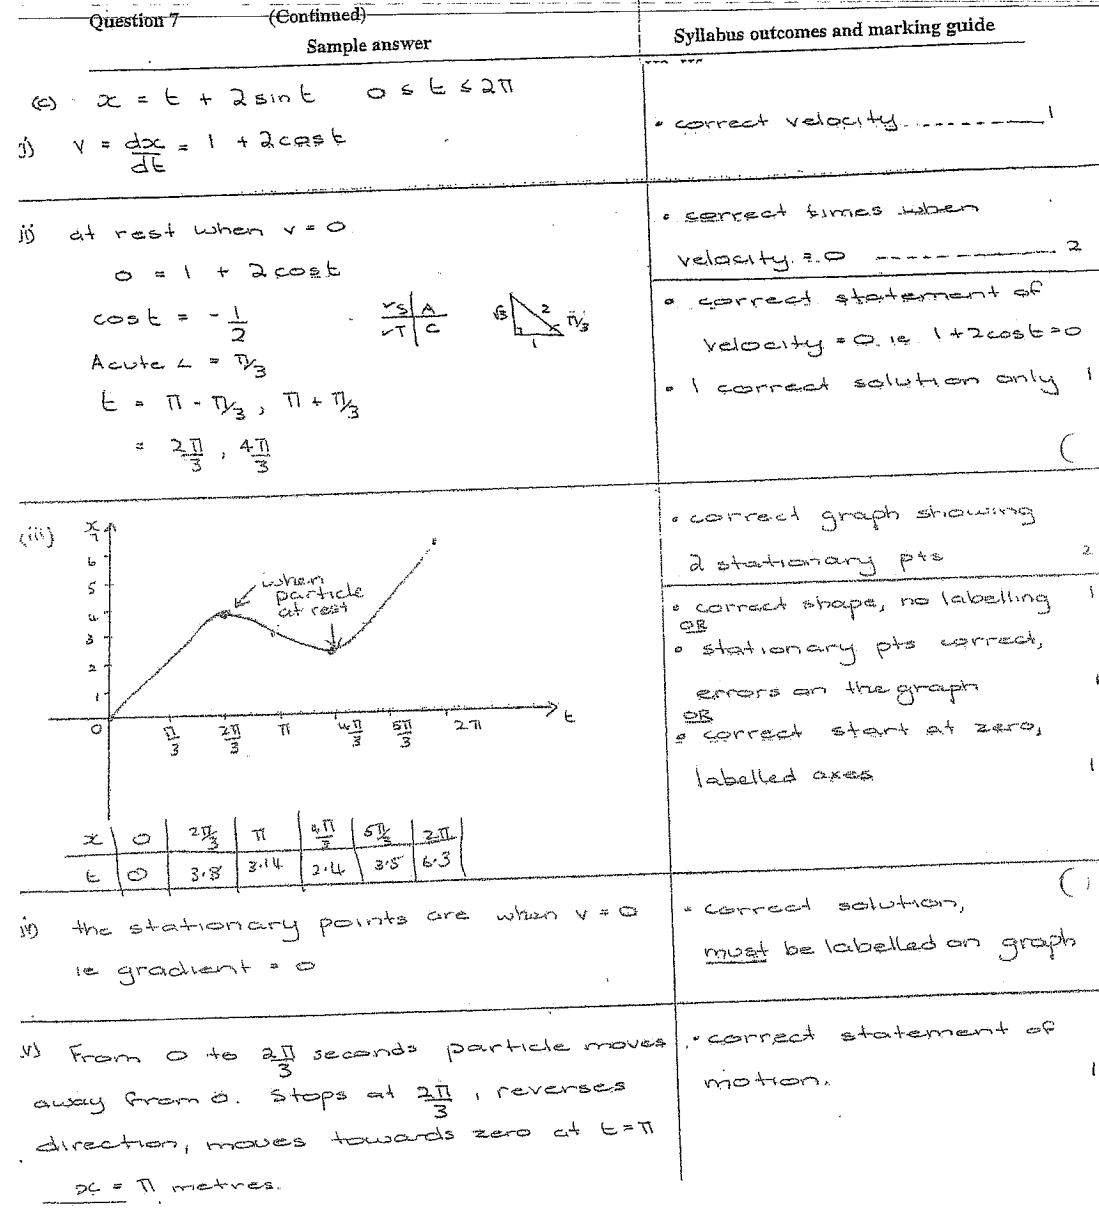 Question 7 (Continued)
Sample answer
Syllabus outcomes and marking guide
(c) x = t + 2 sin t 0 ≤ t ≤ 2π
i) v = dx/dt = 1 + 2 cos t
• correct velocity ---------- 1
ii) at rest when v = 0
0 = 1 + 2 cos t
cos t = - 1/2
✓S | A
✓T | C
√3 2 π/3
1
Acute ∠ = π/3
t = π - π/3, π + π/3
= 2π/3, 4π/3
• correct times when
velocity = 0 ---------- 2
• correct statement of
velocity = 0. ie 1+2cost=0
• 1 correct solution only 1
(
(iii) x
7
6
5
4
3
2
1
0 π/3 2π/3 π 4π/3 5π/3 2π t
when
particle
at rest
x | 0 | 2π/3 | π | 4π/3 | 5π/3 | 2π
t | 0 | 3.8 | 3.14 | 2.4 | 3.5 | 6.3
• correct graph showing
2 stationary pts 2
• correct shape, no labelling 1
OR
• stationary pts correct,
errors on the graph 1
OR
• correct start at zero,
labelled axes 1
(1
iv) the stationary points are when v = 0
ie gradient = 0
• correct solution,
must be labelled on graph
v) From 0 to 2π/3 seconds particle moves
away from 0. Stops at 2π/3, reverses
direction, moves towards zero at t=π
x = π metres.
• correct statement of
motion. 1